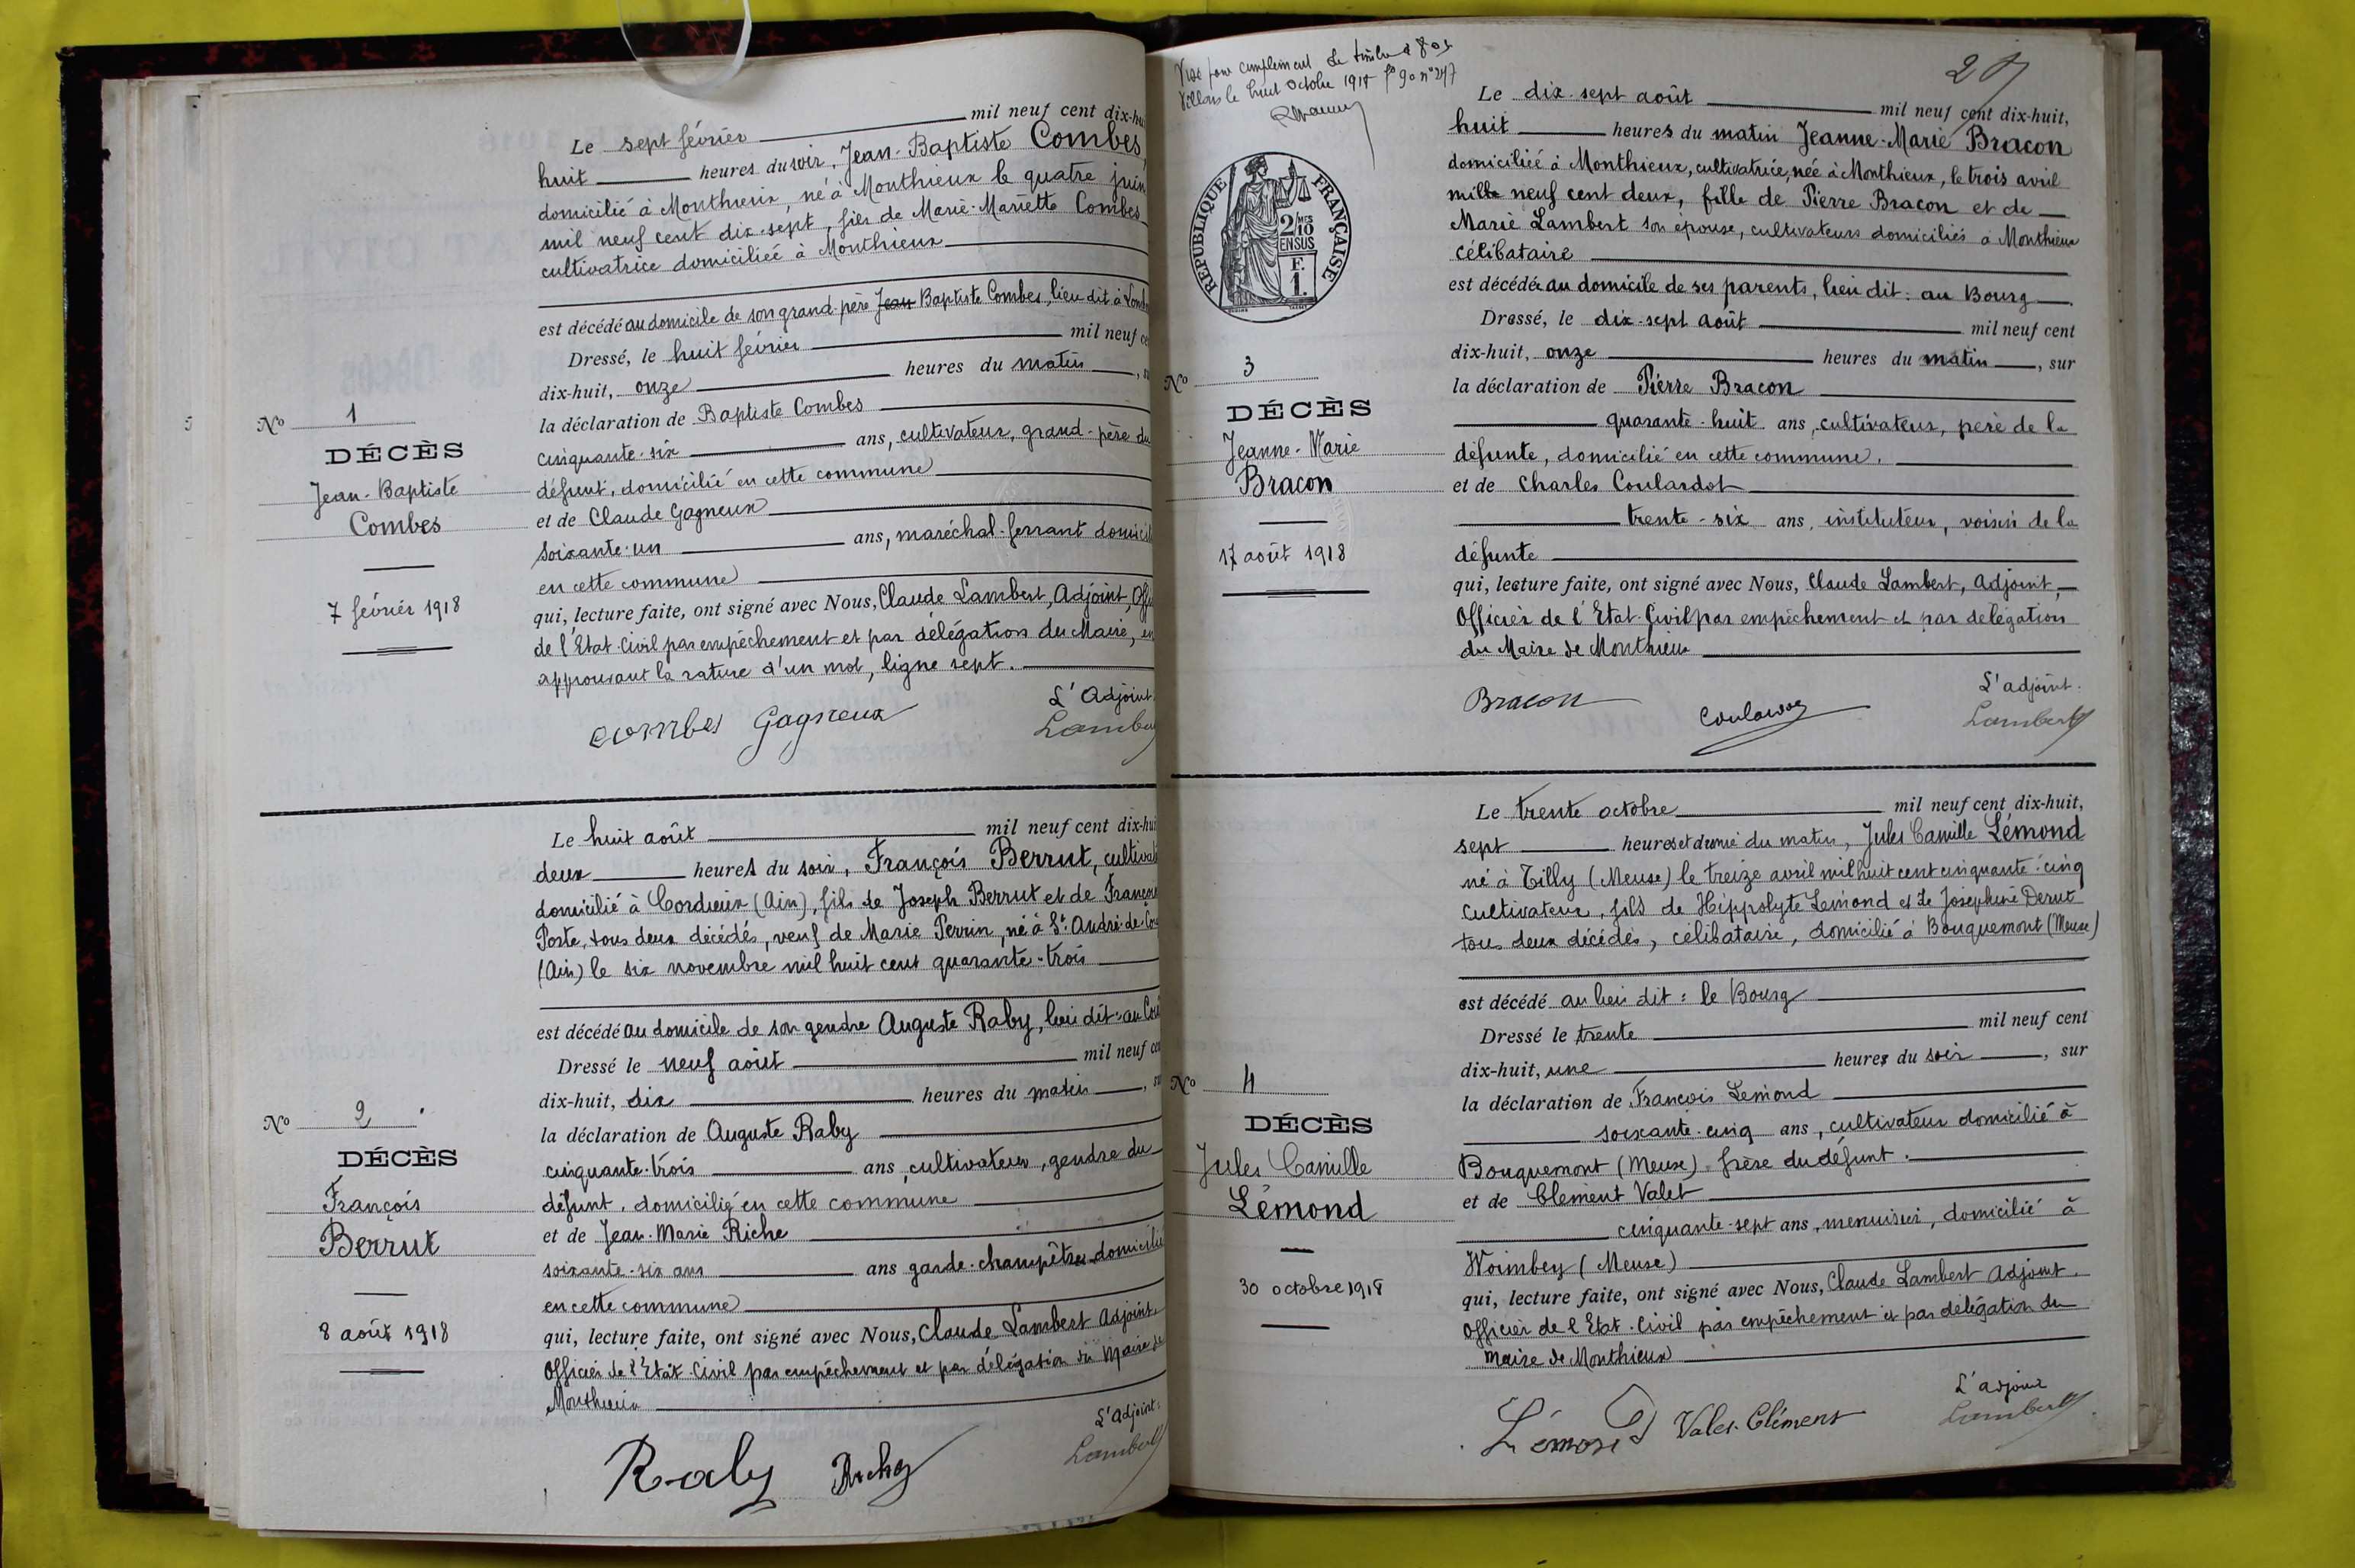 Le sept février mil neuf cent dix-hu
huit heures du soir, Jean-Baptiste Combes,
domicilié à Monthieux, né à Monthieux le quatre juin
mil neuf cent dix-sept, fils de Marie-Mariette Combes
cultivatrice domiciliée à Monthieux
est décédé au domicile de son grand-père Jean Baptiste Combes, lieu dit à
Dressé, le huit février mil neuf ce
dix-huit, onze heures du matin,
la déclaration de Baptiste Combes
cinquante-six ans, cultivateur, grand-père du
défunt, domicilié en cette commune
et de Claude Gagneux
soixante-un ans, maréchal-ferrant domicil
en cette commune
qui, lecture faite, ont signé avec Nous, Claude Lambert, Adjoint, Offi
de l'Etat-Civil par empêchement et par délégation du Maire, en
approuvant la rature d'un mot, ligne sept.
L'Adjoint
combes Gagneux Lamber
Nº 1
DÉCÈS
Jean-Baptiste
Combes
7 février 1918
Le huit août mil neuf cent dix-hui
deux heures du soir, François Berrut, cultivat
domicilié à Cordieux (Ain), fils de Joseph Berrut et de Françoise
Poste, tous deux décédés, veuf de Marie Perrin, né à St André-de-Co
(Ain) le six novembre mil huit cent quarante-trois
est décédé au domicile de son gendre Auguste Raby, lieu dit: au
Dressé le neuf août mil neuf cen
dix-huit, six heures du matin,
la déclaration de Auguste Raby
cinquante-trois ans, cultivateur, gendre du
défunt, domicilié en cette commune
et de Jean-Marie Riche
soixante-six ans ans garde-champêtre domicilié
en cette commune
qui, lecture faite, ont signé avec Nous, Claude Lambert Adjoint
Officier de l'Etat-Civil par empêchement et par délégation du Maire de
Monthieux
L'Adjoint
Raby Lambert
Nº 2
DÉCÈS
François
Berrut
8 août 1918
Visé pour complément de timbre à
Villars le huit Octobre 1918 fº 90 nº 247
RÉPUBLIQUE FRANÇAISE
2/10 MES
EN SUS
F.
1.
Le dix-sept août mil neuf cent dix-huit,
huit heures du matin Jeanne-Marie Bracon
domiciliée à Monthieux, cultivatrice, née à Monthieux, le trois avril
mille neuf cent deux, fille de Pierre Bracon et de
Marie Lambert son épouse, cultivateurs domiciliés à Monthieux
célibataire
est décédée au domicile de ses parents, lieu dit: au Bourg
Dressé, le dix-sept août mil neuf cent
dix-huit, onze heures du matin, sur
la déclaration de Pierre Bracon
quarante-huit ans, cultivateur, père de la
défunte, domicilié en cette commune.
et de Charles Coulardot
trente-six ans, instituteur, voisin de la
défunte
qui, lecture faite, ont signé avec Nous, Claude Lambert, Adjoint,
Officier de l'Etat-Civil par empêchement et par délégation
du Maire de Monthieux
L'adjoint.
Bracon Lambert
Nº 3
DÉCÈS
Jeanne-Marie
Bracon
17 août 1918
Le trente octobre mil neuf cent dix-huit,
sept heures et demie du matin, Jules Camille Lémond
né à Tilly (Meuse) le treize avril mil huit cent cinquante-cinq
cultivateur, fils de Hippolyte Lemond et de Joséphine Derut
tous deux décédés, célibataire, domicilié à Bouquemont (Meuse)
est décédé au lieu dit: le Bourg
Dressé le trente mil neuf cent
dix-huit, une heures du soir, sur
la déclaration de François Lemond
soixante-cinq ans, cultivateur domicilié à
Bouquemont (Meuse) frère du défunt.
et de Clément Valet
cinquante-sept ans, menuisier, domicilié à
Woimbey (Meuse)
qui, lecture faite, ont signé avec Nous, Claude Lambert Adjoint.
Officier de l'Etat-Civil par empêchement et par délégation du
Maire de Monthieux
L'adjoint
Lémond Valet Clément Lambert
Nº 4
DÉCÈS
Jules Camille
Lémond
30 octobre 1918